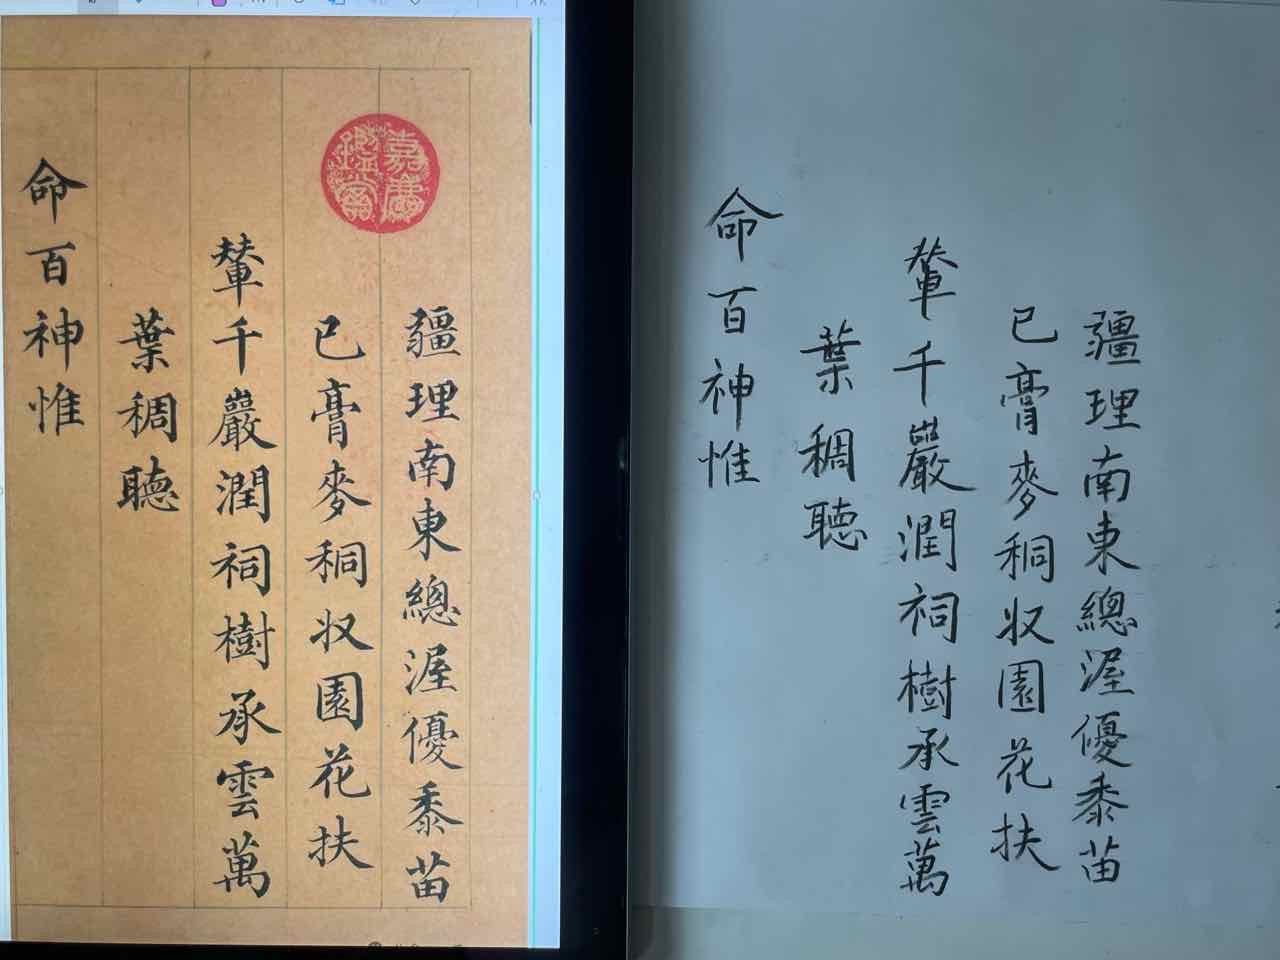 疆理南東總渥優黍苗
已膏麥秱収園花扶
輦千巖潤祠樹承雲萬
葉稠聽
命百神惟
嘉慶
鑑賞
疆理南東總渥優黍苗
已膏麥秱収園花扶
輦千巖潤祠樹承雲萬
葉稠聽
命百神惟